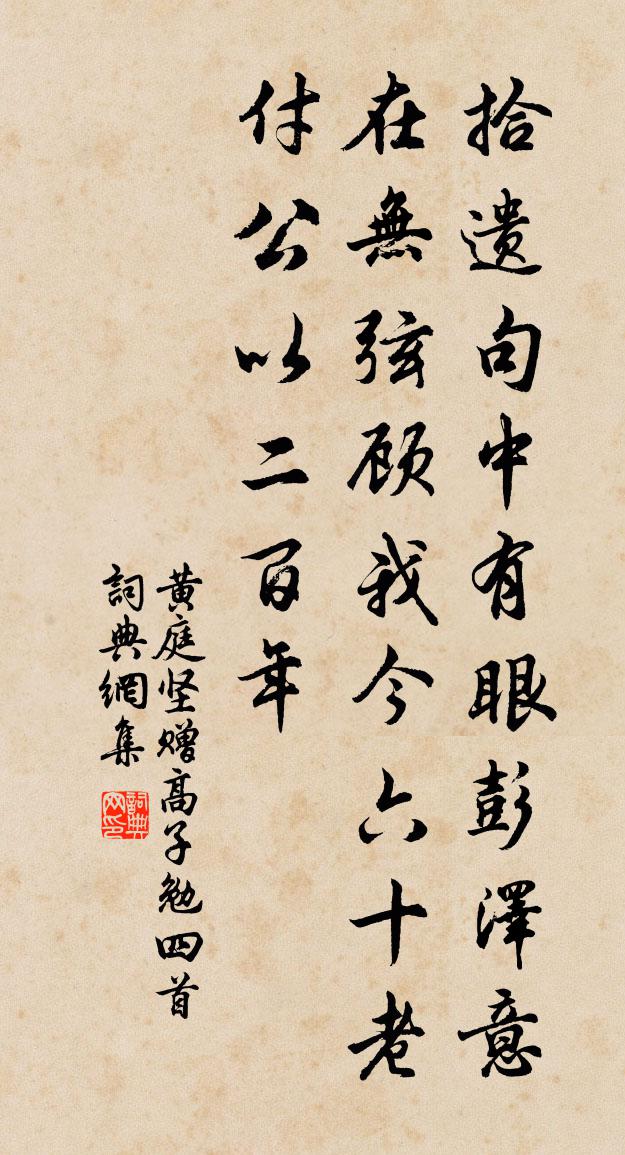 拾遗句中有眼彭澤意
在無弦顾我今六十老
付公以二百年
黄庭坚赠高子勉四首
詞典網集
詞典网印